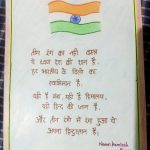 तीन रंग का नही वस्त्र
ये ध्वज देश की शान है
हर भारतीय के दिलो का
स्वाभिमान है
यही है गंगा यही है हिमालय
यही हिन्द की जान है
और तीन रंगों में रंगा हुआ ये
अपना हिन्दुस्तान है।